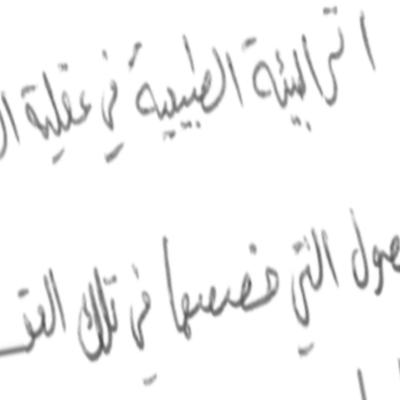 اثر البيئة الطبيعية في عقلية ال
صول التي خصصها في تلك الفقـ